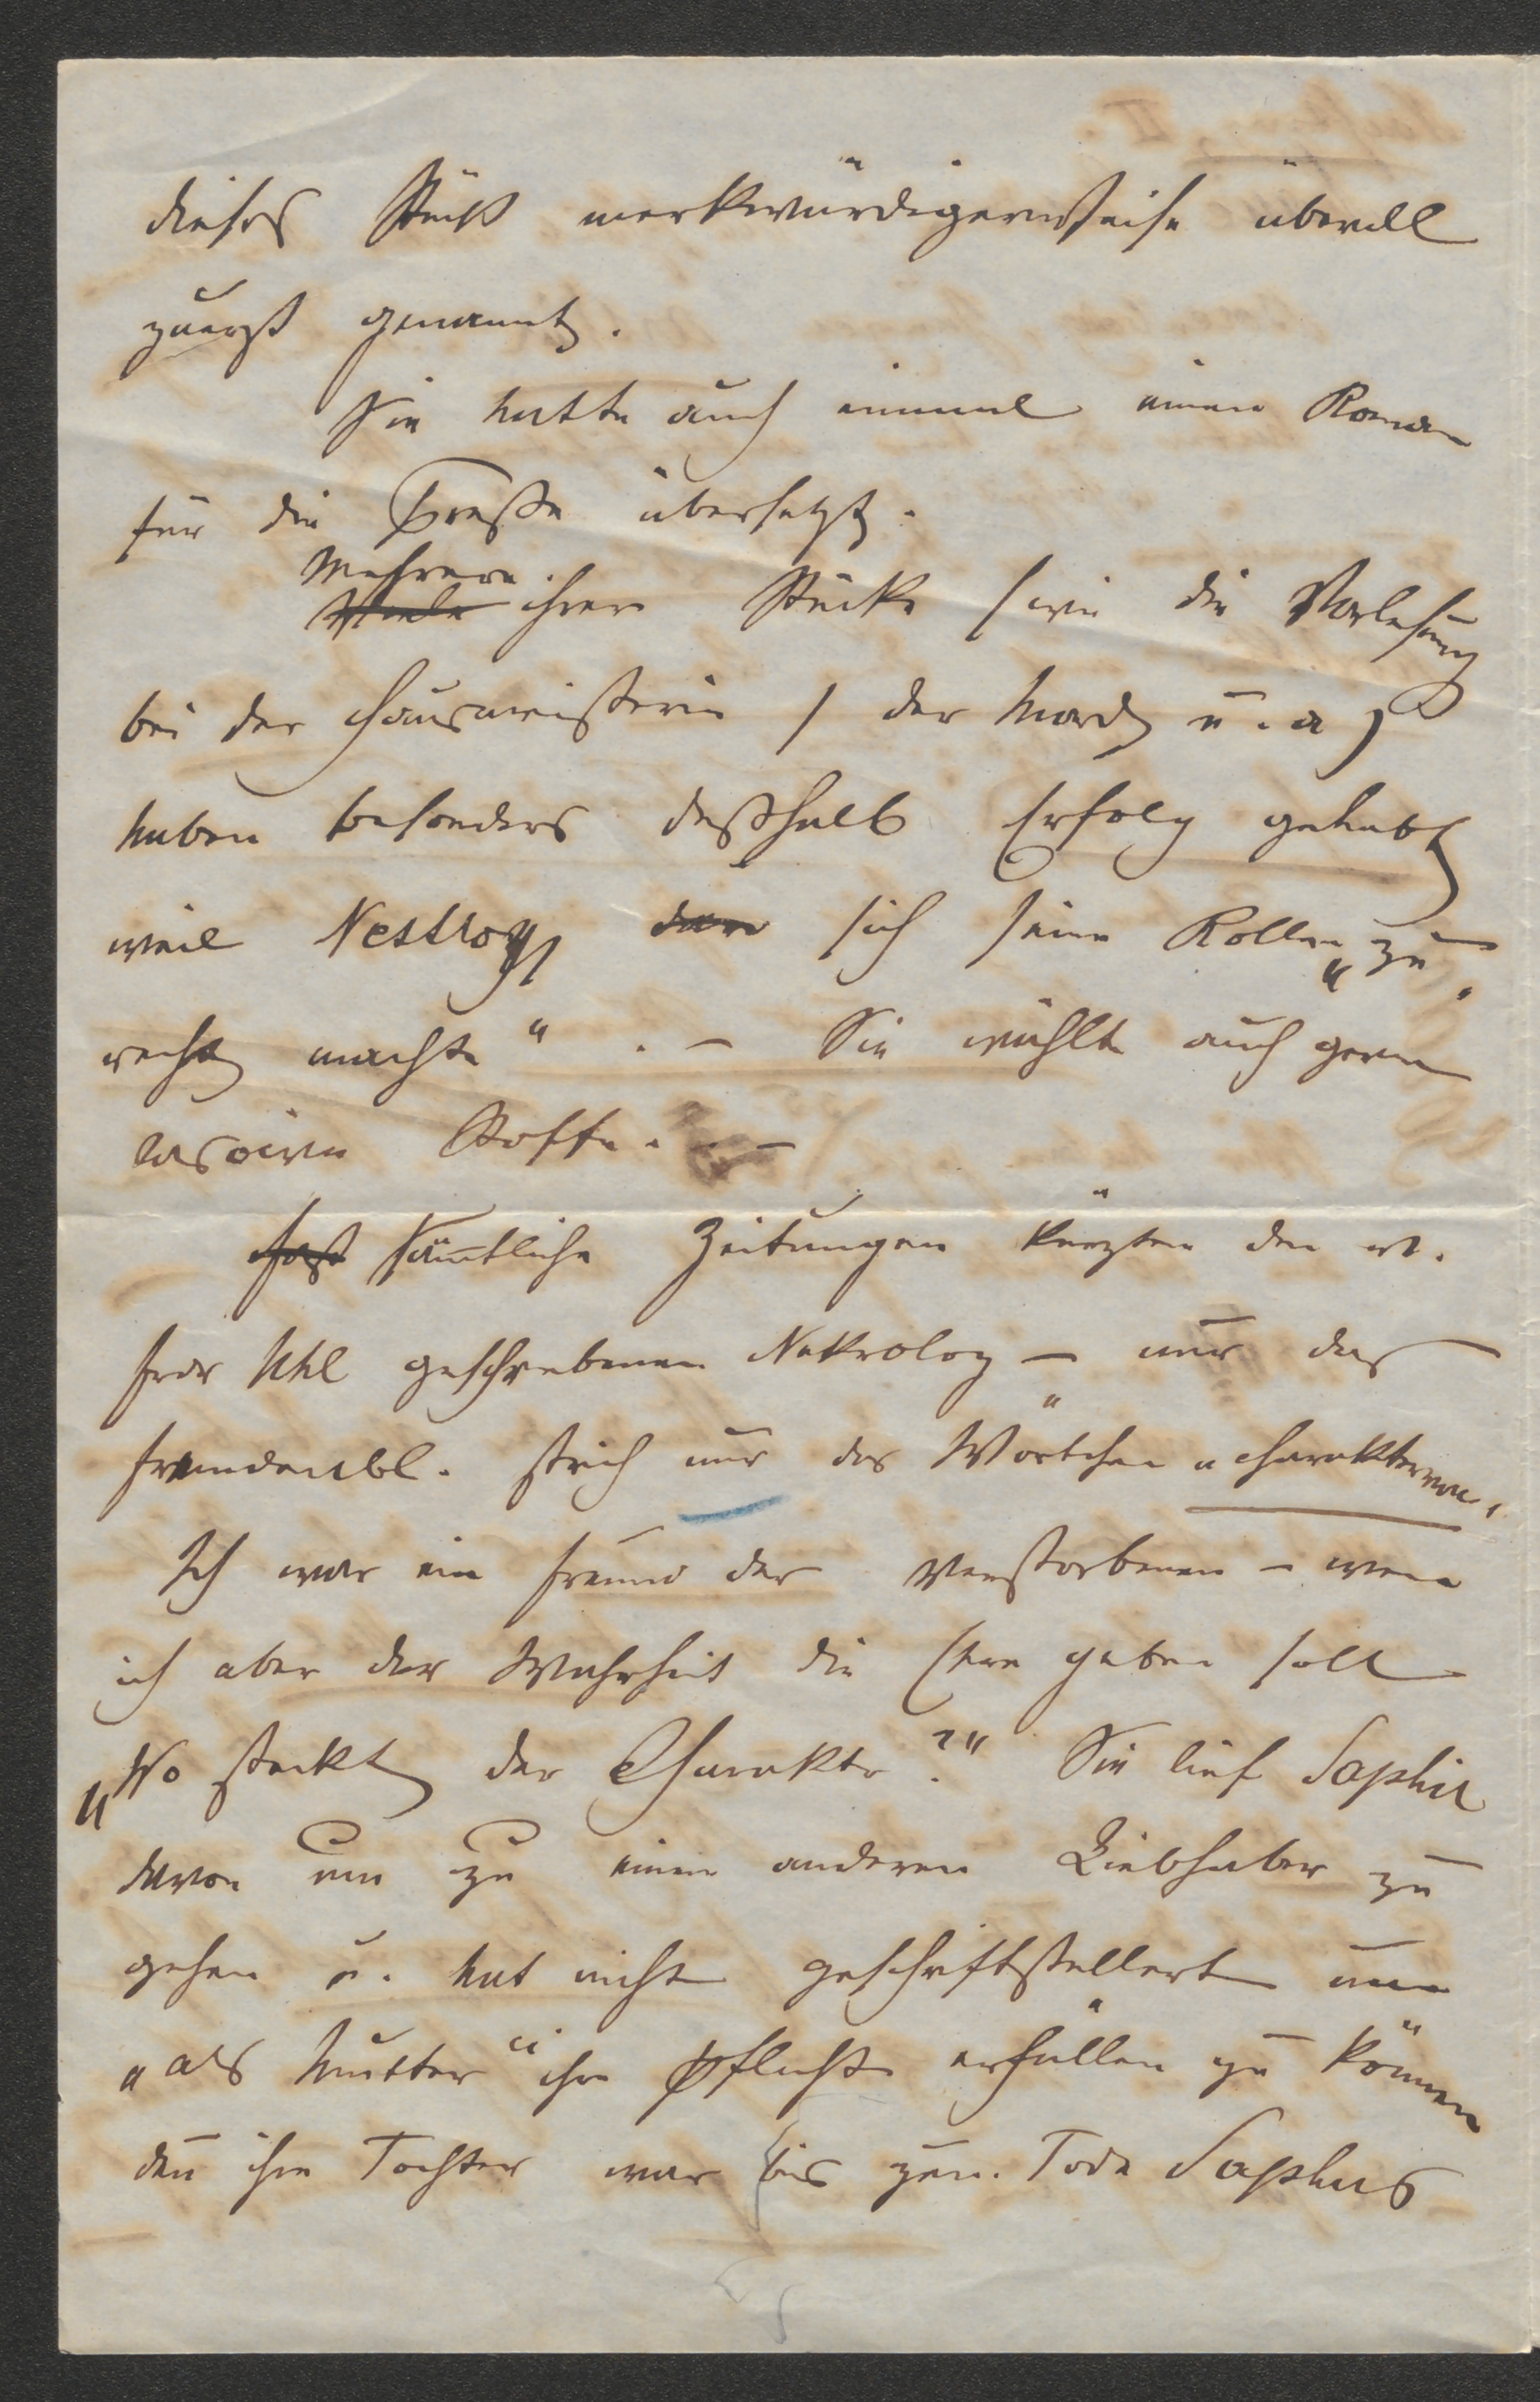 dieses Stück merkwürdigerweise überall
zuerst genannt.
Sie hatte auch einmal einen Roman
für die Presse übersetzt.
Mehrere
Viele ihrer Stücke (wie die Vorlesung
bei der Hausmeisterin / der Mord u. a)
haben besonders deßhalb Erfolg gehabt
weil Nestroy der sich seine Rollen „zu„
recht machte“. – Sie wählte auch gern
lascive Stoffe. –
Fast sämtliche Zeitungen kürzten den v.
Frdr Uhl geschrebenen Nekrolog – nur das
Fremdenbl. strich nur das Wörtchen „charaktervoll„
Ich war ein Freund der Verstorbenen – wenn
ich aber der Wahrheit die Ehre geben soll
„Wo steckt der Charakter?“ Sie lief Saphir
davon um zu einem anderen Liebhaber zu
gehen u. hat nicht geschriftstellert um
„als Mutter“ ihre Pflicht erfüllen zu können
den ihre Tochter war bis zum Tode Saphirs